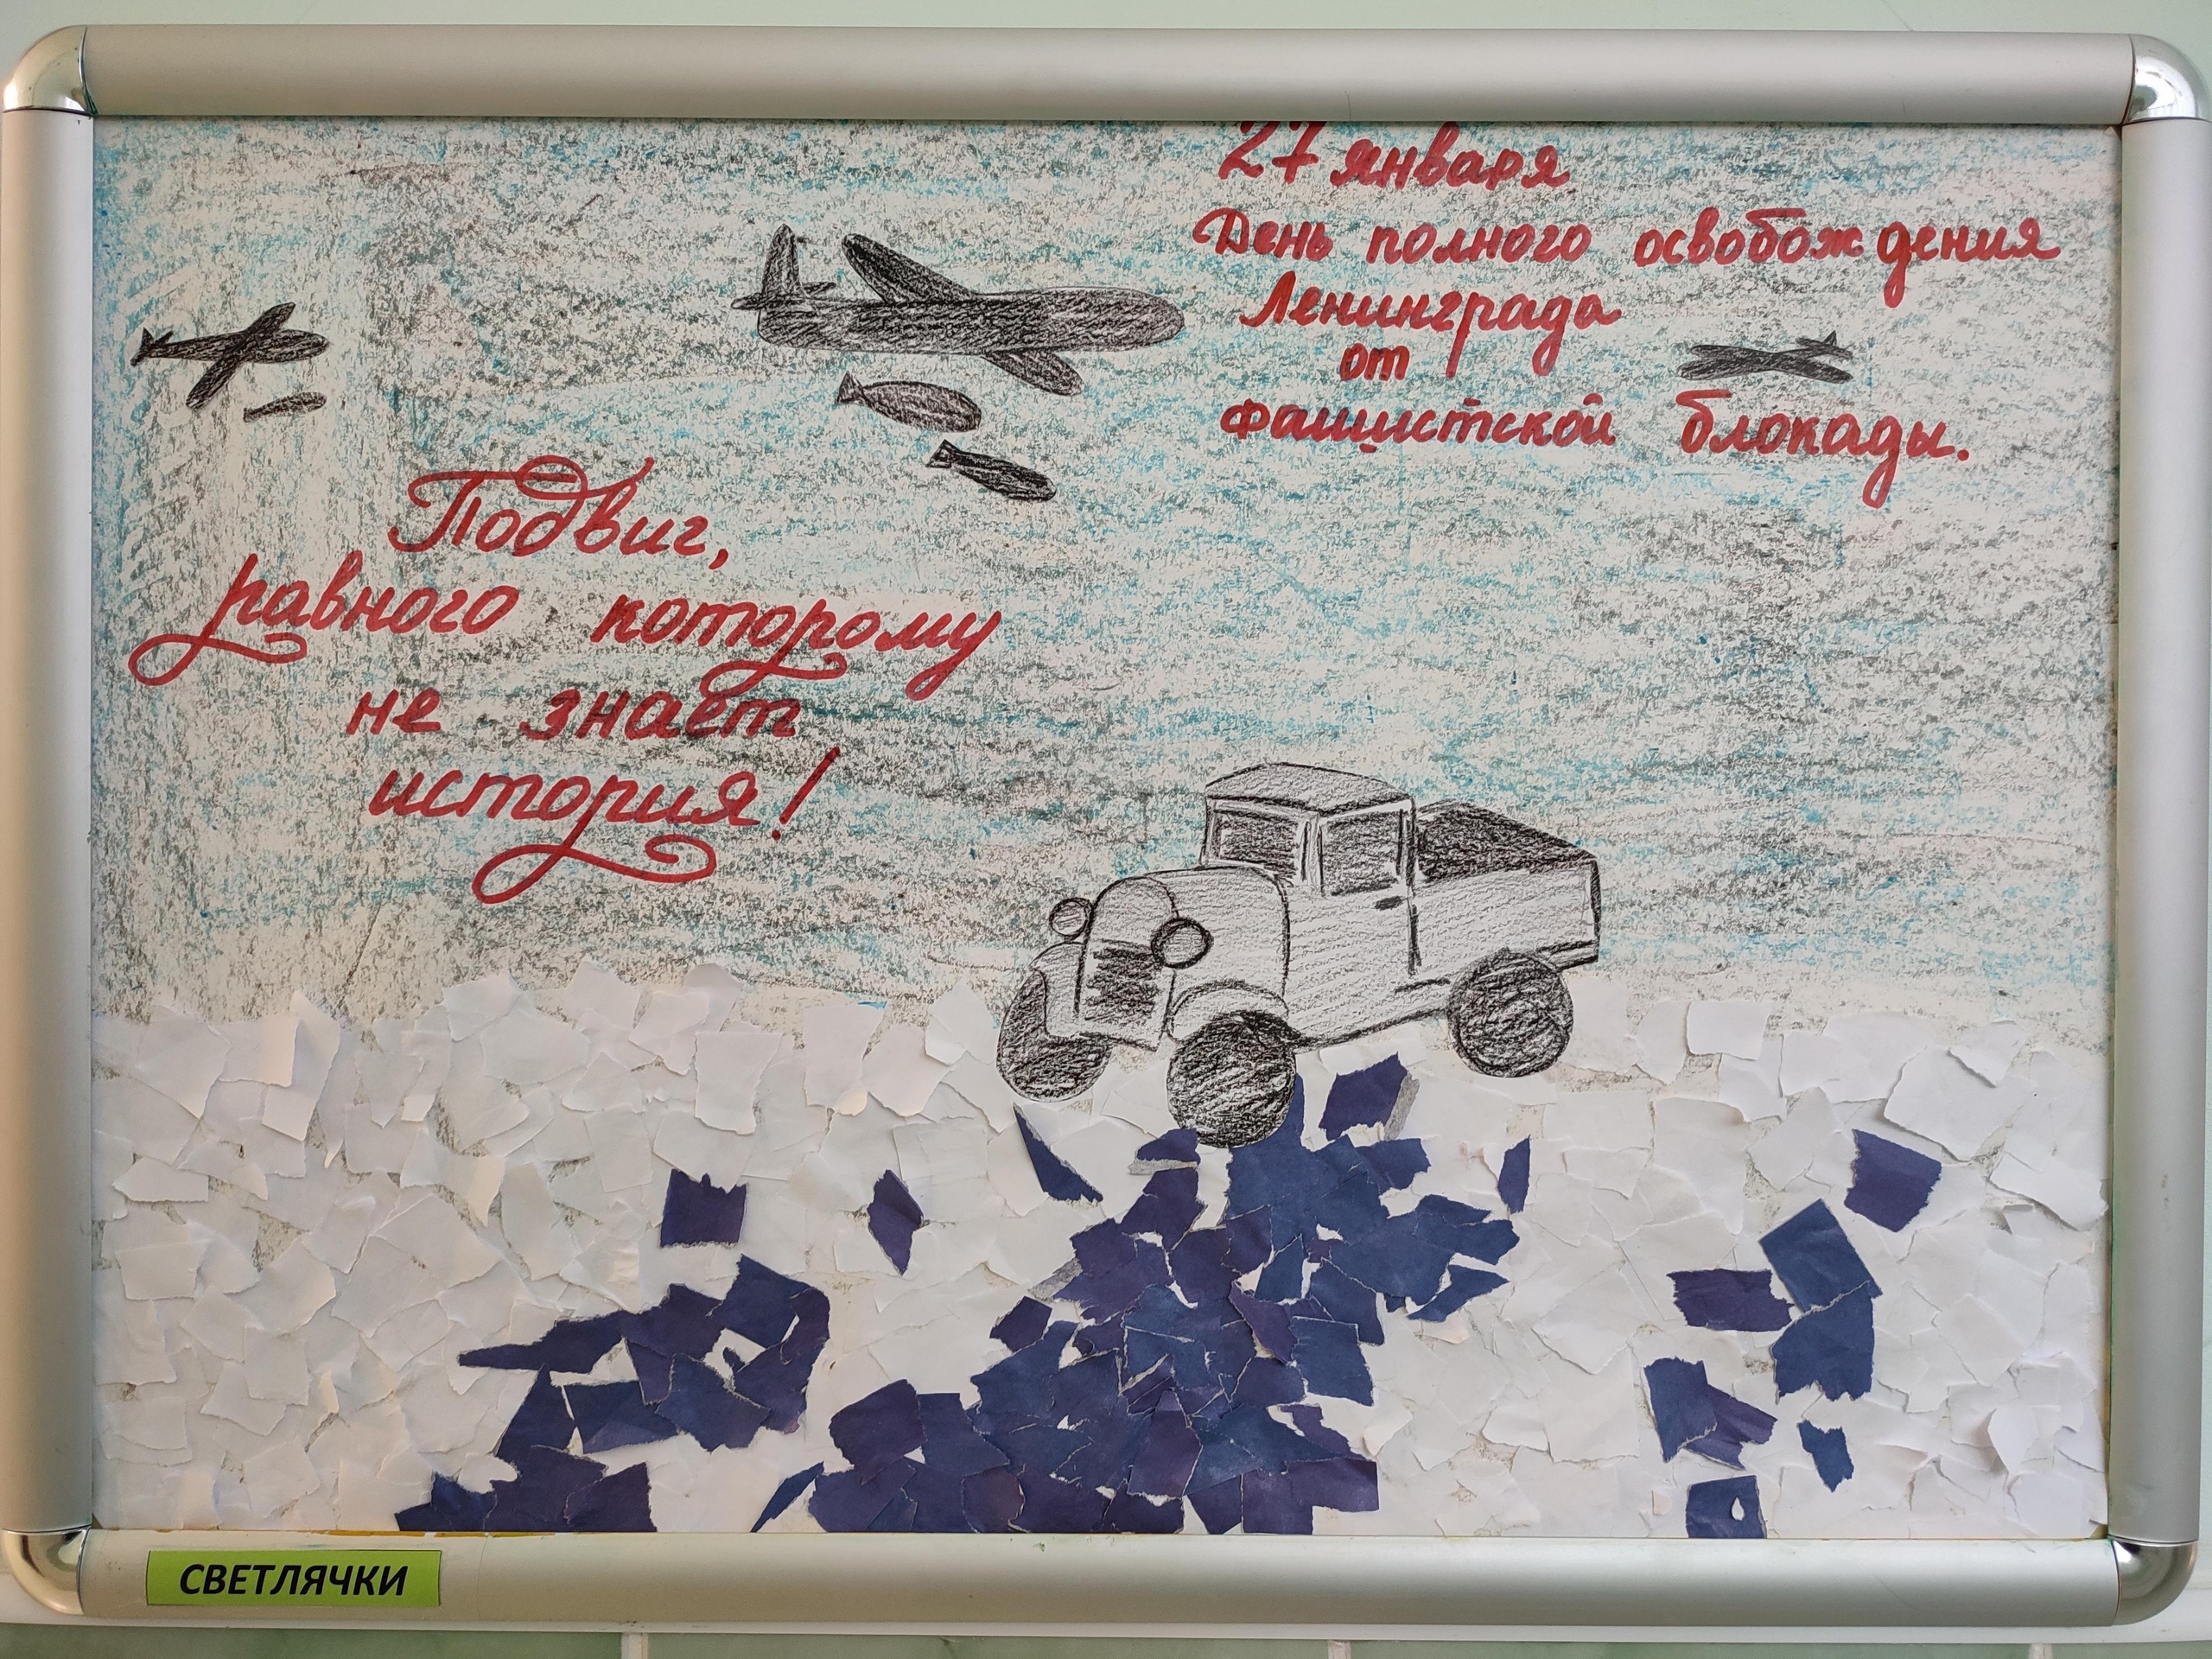 27 января
День полного освобождения
Ленинграда
от
фашистской блокады.
Подвиг,
равного которому
не знает
история!
СВЕТЛЯЧКИ